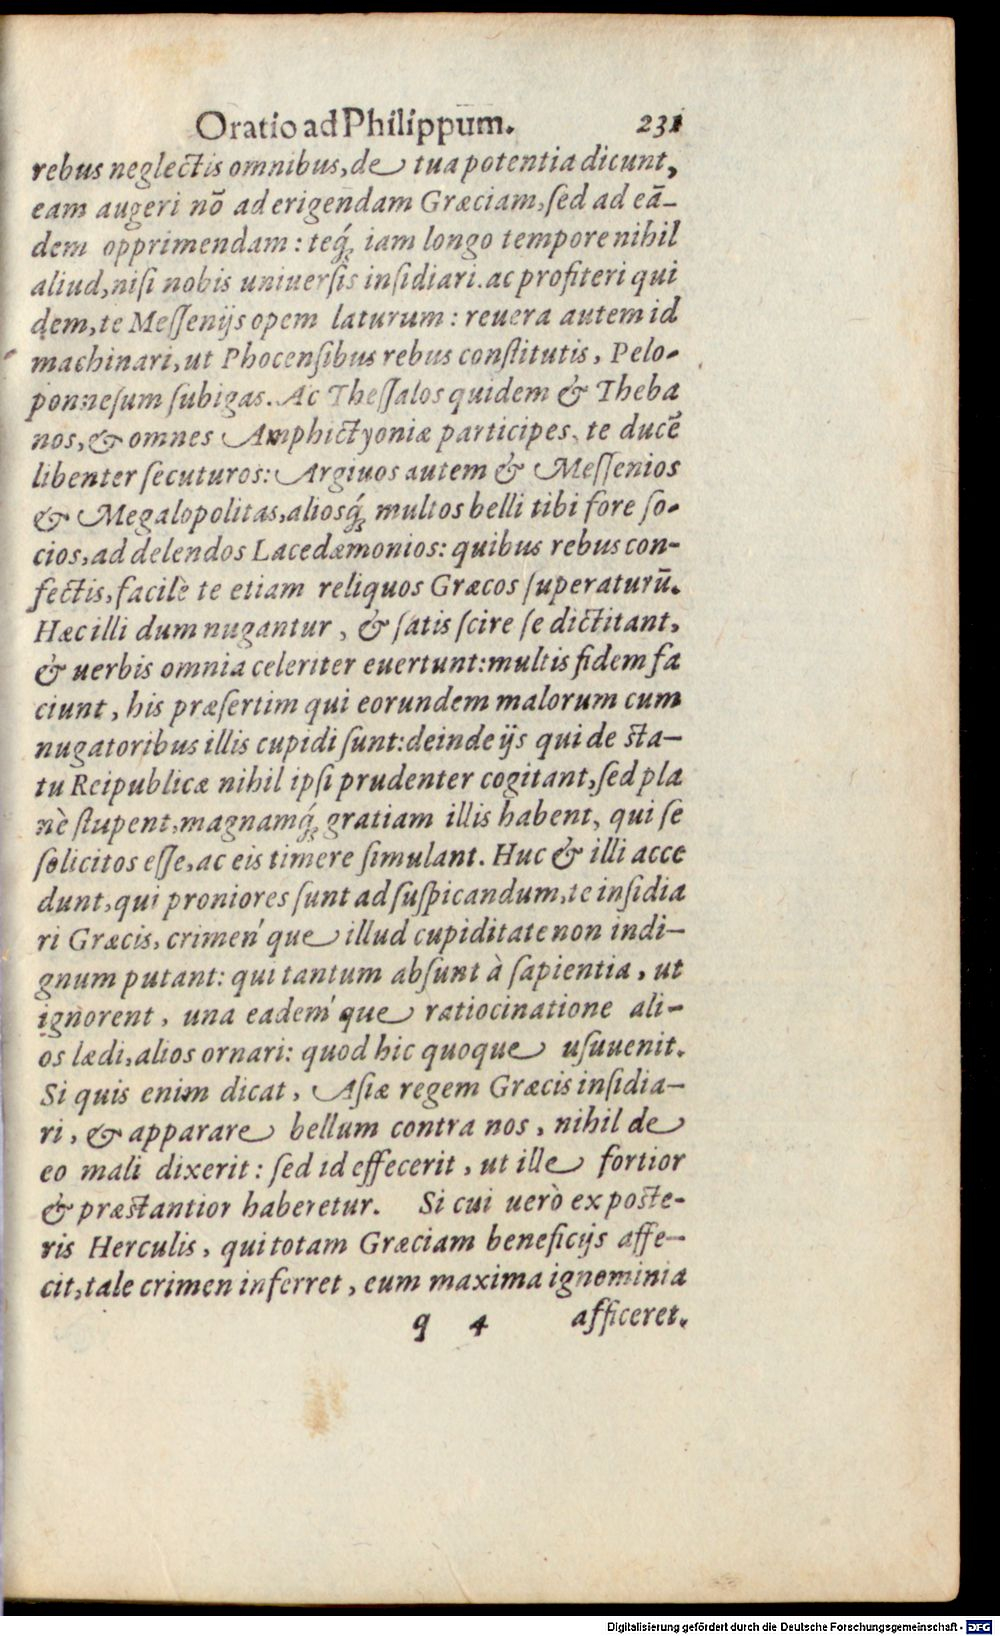 Oratio ad Philippum. 231
rebus neglectis omnibus, de tua potentia dicunt,
eam augeri nō ad erigendam Græciam, sed ad eā-
dem opprimendam: teq́; iam longo tempore nihil
aliud, nisi nobis uniuersis insidiari. ac profiteri qui
dem, te Messenijs opem laturum: reuera autem id
machinari, ut Phocensibus rebus constitutis, Pelo-
ponnesum subigas. Ac Thessalos quidem & Theba
nos, & omnes Amphictyoniæ participes, te ducē
libenter secuturos: Argiuos autem & Messenios
& Megalopolitas, aliosq́; multos belli tibi fore so-
cios, ad delendos Lacedæmonios: quibus rebus con-
fectis, facilè te etiam reliquos Græcos superaturū.
Hæc illi dum nugantur, & satis scire se dictitant,
& uerbis omnia celeriter euertunt: multis fidem fa
ciunt, his præsertim qui eorundem malorum cum
nugatoribus illis cupidi sunt: deinde ijs qui de sta-
tu Reipublicæ nihil ipsi prudenter cogitant, sed pla
nè stupent, magnamq́; gratiam illis habent, qui se
solicitos esse, ac eis timere simulant. Huc & illi acce
dunt, qui proniores sunt ad suspicandum, te insidia
ri Græcis, crimen'que illud cupiditate non indi-
gnum putant: qui tantum absunt à sapientia, ut
ignorent, una eadem'que ratiocinatione ali-
os lædi, alios ornari: quod hic quoque usuuenit.
Si quis enim dicat, Asiæ regem Græcis insidia-
ri, & apparare bellum contra nos, nihil de
eo mali dixerit: sed id effecerit, ut ille fortior
& præstantior haberetur. Si cui uerò ex poste-
ris Herculis, qui totam Græciam beneficijs affe-
cit, tale crimen inferret, eum maxima ignominia
q 4 afficeret.
Digitalisierung gefördert durch die Deutsche Forschungsgemeinschaft - DFG